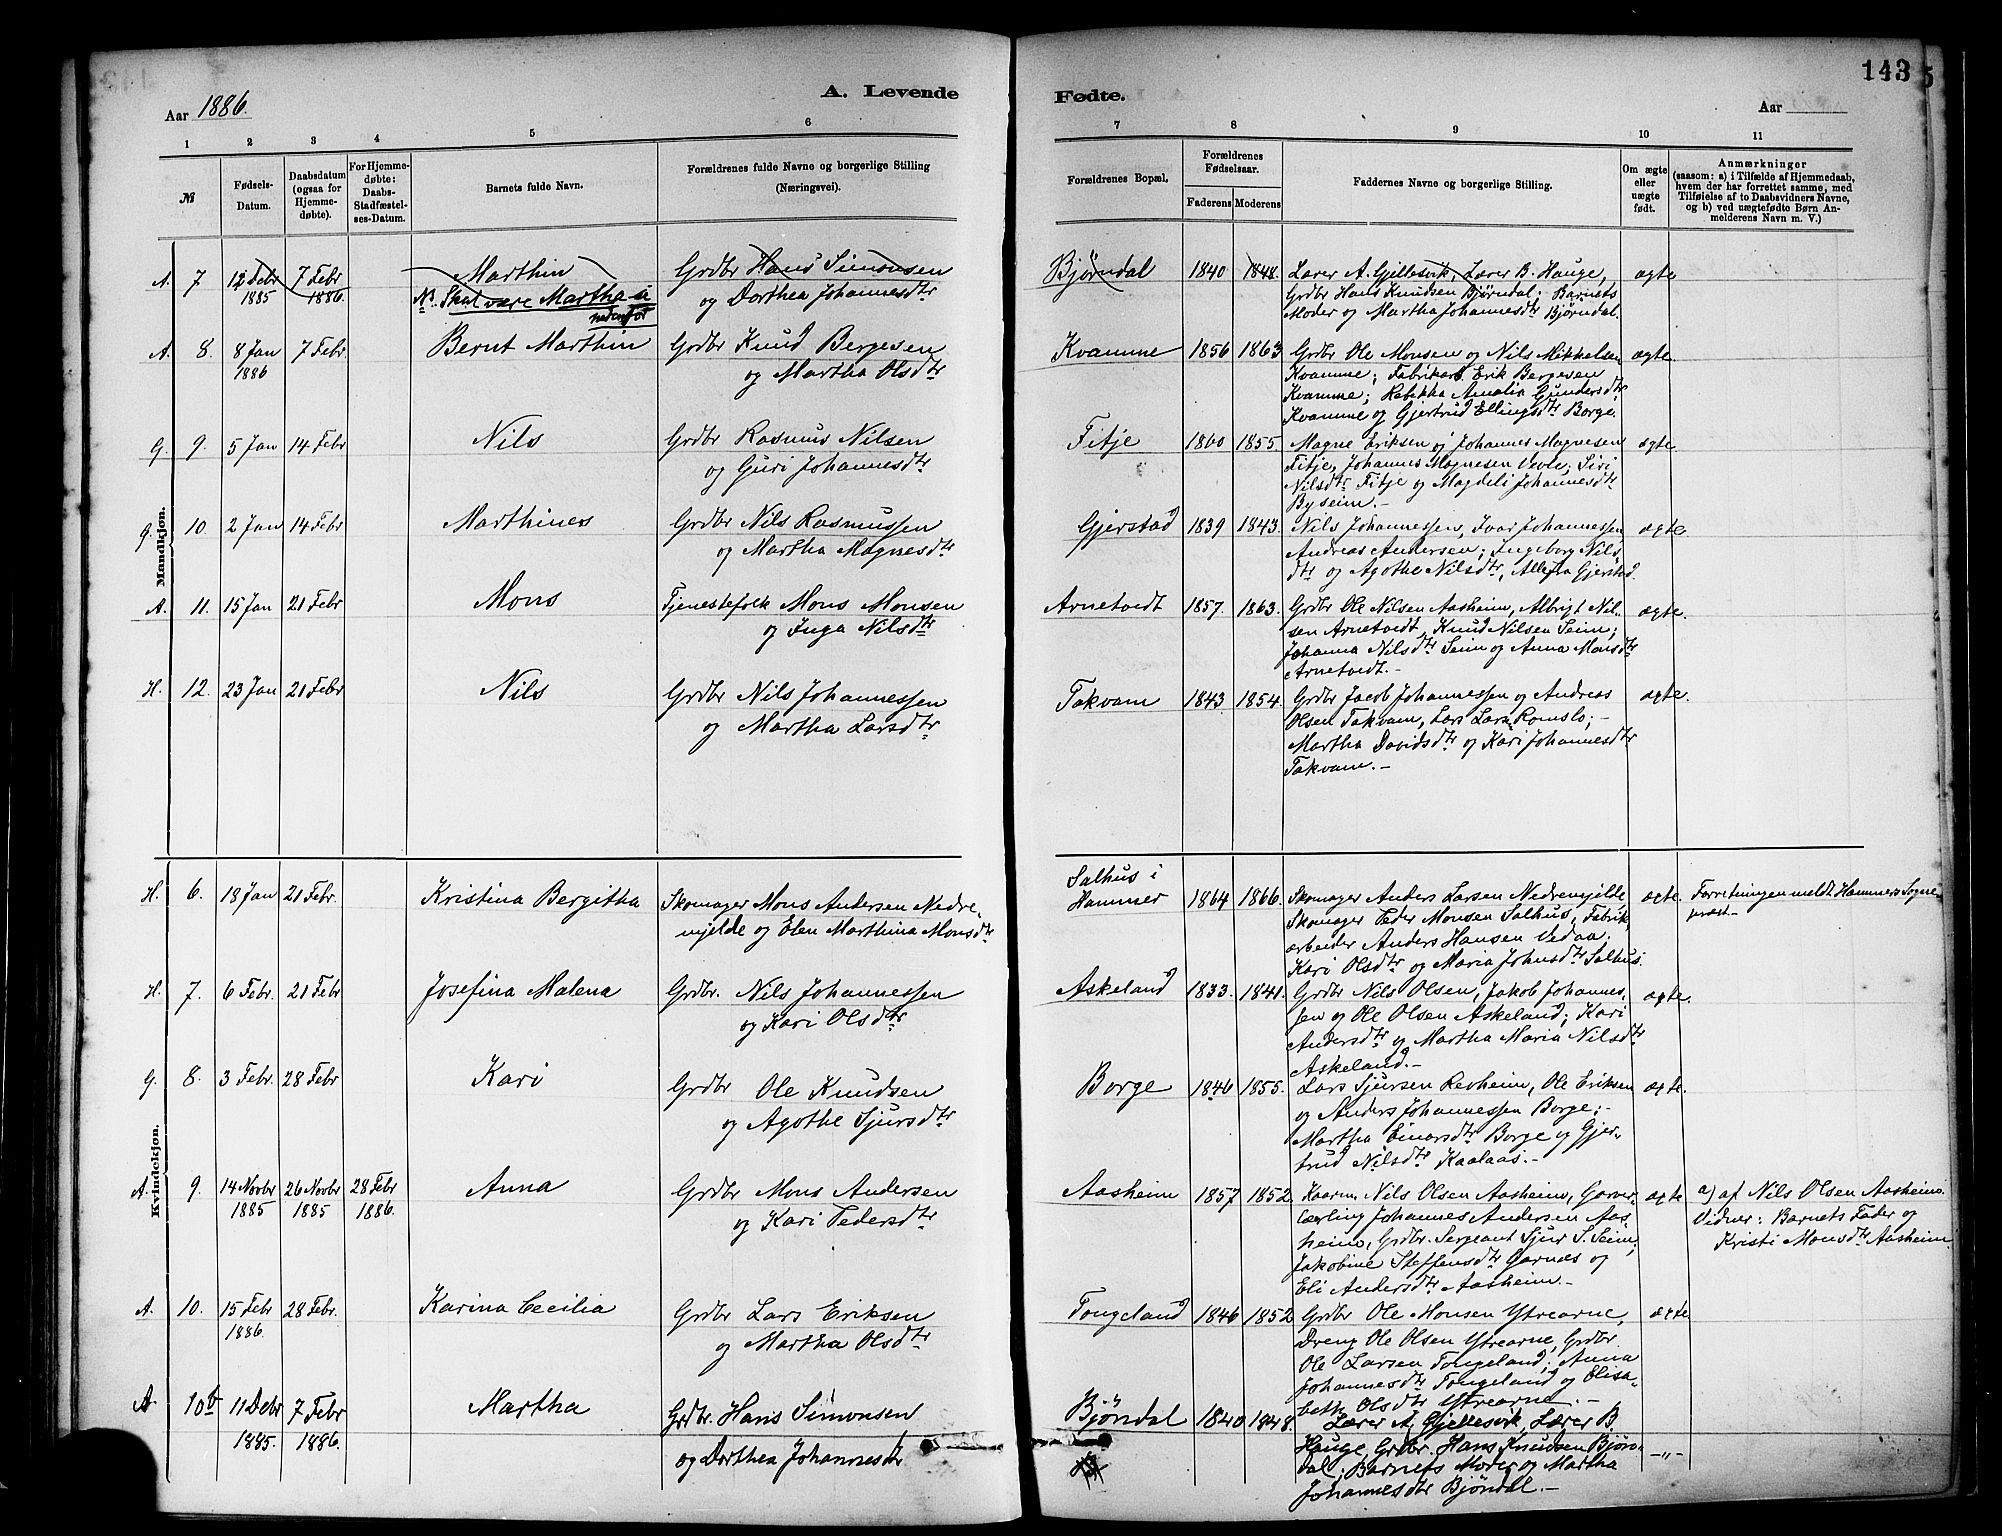 143
Aar 1886.
A. Levende Fødte.
Aar
1 2 3 4 5 6 7 8 9 10 11
№
Fødsels-Datum.
Daabsdatum (ogsaa for Hjemmedøbte).
For Hjemmedøbte: Daabs-Stadfæstelses-Datum.
Barnets fulde Navn.
Forældrenes fulde Navne og borgerlige Stilling (Næringsvei).
Forældrenes Bopæl,
Forældrenes Fødselsaar.
Faderens Moderens
Faddernes Navne og borgerlige Stilling.
Om ægte eller uægte født.
Anmærkninger
(saasom: a) i Tilfælde af Hjemmedaab,
hvem der har forrettet samme, med
Tilføielse af to Daabsvidners Navne,
og b) ved uægtefødte Børn Anmelderens Navn m. V.)
Mandkjøn.
A. 7 12 Debr 1885 7 Febr 1886 Marthin
N. Skal være Martha nedenfor
Grdbr Hans Simonsen
og Dorthea Johannesdtr
Bjørndal 1840 1848
Lærer A. Gjellesvik, Lærer B. Hauge,
Grdbr Hans Knudsen Bjørndal; Barnets
Moder og Martha Johannesdtr Bjørndal.
ægte
A. 8. 8 Jan 1886 7 Febr Bernt Marthin
Grdbr Knud Bergesen
og Martha Olsdtr
Kvamme 1856 1863
Grdbr Ole Monsen og Nils Mikkelsen
Kvamme; Fabrikarb. Erik Bergesen
Kvamme; Rebekka Amalia Gundersdtr
Kvamme og Gjertrud Ellingsdtr Borge.
ægte
G. 9. 5 Jan 14 Febr Nils
Grdbr Rasmus Nilsen
og Guri Johannesdtr
Fitje 1855.
Magne Eriksen og Johannes Magnesen
Fitje, Johannes Magnesen Vevle; Siri
Nilsdtr Fitje og Magdeli Johannesdtr
Byseim.-
ægte
G. 10 2 Jan 14 Febr Marthines
Grdbr Nils Rasmussen
og Martha Magnesdtr
Gjerstad 1839 1843.
Nils Johannessen, Ivar Johannessen,
Andreas Andersen; Ingeborg Nils-
dtr og Agothe Nilsdtr, Alle fra Gjerstad.
ægte
A. 11. 15 Jan 21 Febr Mons
Tjenestefolk Mons Monsen
og Inga Nilsdtr
Arnetvedt 1857. 1863.
Grdbr Ole Nilsen Aasheim, Albrigt Nil-
sen Arnetvedt, Knud Nilsen Seim;
Johanna Nilsdtr Seim og Anna Monsdtr
Arnetvedt.-
ægte.
H. 12. 23 Jan 21 Febr Nils
Grdbr Nils Johannessen
og Martha Larsdtr
Takvam 1843 1854.
Grdbr Jacob Johannessen og Andreas
Olsen Takvam, Lars Lars. Romslo;-
Martha Davidsdtr og Kari Johannesdtr
Takvam.-
ægte.
Kvindekjøn.
H. 6. 18 Jan 21 Febr. Kristina Bergitha
Skomager Mons Andersen Nedre-
mjelde og Elen Marthina Monsdtr
Salhus i Hammer 1864 1866.
Skomager Anders Larsen Nedremjelde,
Skomager Peder Monsen Salhus, Fabrik-
arbeider Anders Hansen Vedaa.
Kari Olsdtr og Maria Johnsdtr Salhus.
ægte. Forretningen meldt Hammers Sogne-
præst.-
H. 7. 6 Febr. 21 Febr Josefina Malena
Grdbr. Nils Johannessen
og Kari Olsdtr
Askeland 1833. 1841.
Grdbr Nils Olsen, Jakob Johannes-
sen og Ole Olsen Askeland; Kari
Andersdtr og Martha Maria Nilsdtr
Askeland.-
ægte.
G. 8. 3 Febr. 28 Febr Kari
Grdbr Ole Knudsen
og Agothe Sjursdtr
Borge 1840 1855.
Lars Sjursen Revheim, Ole Eriksen
og Anders Johannessen Borge;-
Martha Einarsdtr Borge og Gjer-
trud Nilsdtr Kaalaas.-
ægte.
A. 9. 14 Novbr 1885 26 Novbr 1885 28 Febr 1886. Anna
Grdbr Mons Andersen
og Kari Pedersdtr
Aasheim 1857 1852.
Kaarm. Nils Olsen Aasheim, Garver-
lærling Johannes Andersen Aas-
heim, Grdbr. Sergeant Sjur S. Seim;
Jakobine Steffensdtr Garnæs og
Eli Andersdtr Aasheim.-
ægte
a) af Nils Olsen Aasheim.
Vidner: Barnets Fader og
Kristi Monsdtr Aasheim.
A. 10. 15 Febr 1886. 28 Febr. Karina Cecilia
Grdbr Lars Eriksen
og Martha Olsdtr
Tongeland 1846 1852
Grdbr Ole Monsen Ytrearne,
Dreng Ole Olsen Ytrearne, Grdbr.
Ole Larsen Tongeland; Anna
Johannesdtr Tongeland og Elisa-
beth Olsdtr Ytrearne.-
ægte
A. 10b 11 Debr 1885. 7 Febr 1886. Martha
Grdbr. Hans Simonsen
og Dorthea Johannesdtr
Bjöndal 1840 1848.
Lærer A. Gjellesvik, Lærer B.
Hauge, Grdbr. Hans Knudsen Bjön-
dal; Barnets Moder og Martha
Johannesdtr Bjöndal.-
-"-